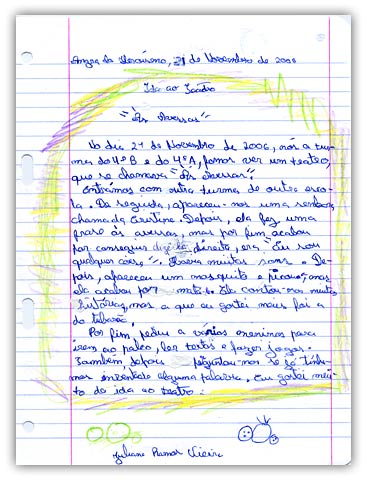 Angra do Heroísmo, 21 de Novembro de 2006
Ida ao Teatro
"Às Avessas"
No dia 21 de Novembro de 2006, nós a tur
ma do 4ºB e do 4ºA, fomos ver um teatro,
que se chamava "Às Avessas".
Entrámos com outra turma de outra esco
la. De seguida, apareceu-nos uma senhora
chamada Cristine. Depois, ela fez uma
frase às avessas, mas por fim acabou
por conseguir dizê-la direito, era "Eu sou
qualquer coisa". Havia muitos sons. De-
pois, apareceu um mosquito e picou-a, mas
ela acabou por matá-lo. Ela contou-nos muitas
histórias, mas a que eu gostei mais foi a
do tubarão.
Por fim, pediu a vários meninos para
irem ao palco, ler textos e fazer jogos.
Também, depois perguntou-nos se já tínha-
mos inventado alguma palavra. Eu gostei mui-
to da ida ao teatro.
Juliana Ramos Vieira